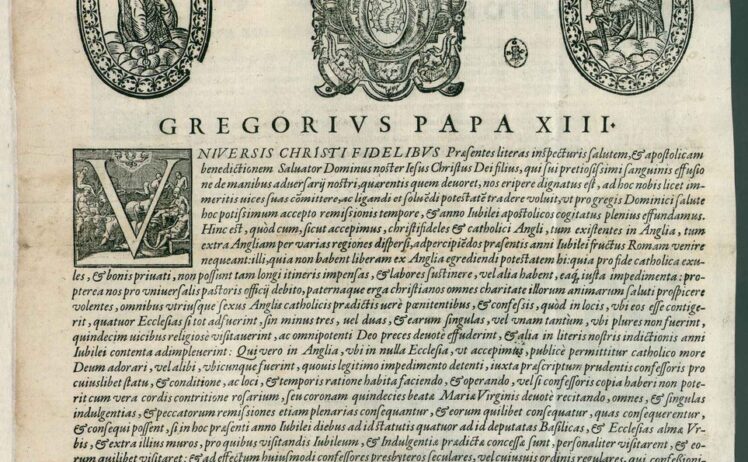 GREGORIVS PAPA XIII.
VNIVERSIS CHRISTI FIDELIBVS Præsentes literas inspecturis salutem, & apostolicam
benedictionem Saluator Dominus noster Iesus Christus Dei filius, qui sui pretiosissimi sanguinis effusio
ne de manibus aduersarij nostri, quærentis quem deuoret, nos eripere dignatus est, ad hoc nobis licet im-
meritis uices suas cōmittere, ac ligandi et soluēdi potestatē tradere voluit, vt pro gregis Dominici salute
hoc potissimum accepto remissionis tempore, & anno Iubilei apostolicos cogitatus plenius effundamus.
Hinc est, quòd cùm, sicut accepimus, christifideles & catholici Angli, tum existentes in Anglia, tum
extra Angliam per varias regiones dispersi, ad percipiēdos præsentis anni Iubilei fructus Romam venire
nequeant: illi, quia non habent liberam ex Anglia egrediendi potestatem hi: quia pro fide catholica exu-
les, & bonis priuati, non possunt tam longi itineris impensas, & labores sustinere, vel alia habent, eaq́; iusta impedimenta: pro-
pterea nos pro vniuersalis pastoris officij debito, paternaque erga christianos omnes charitate illorum animarum saluti prospicere
volentes, omnibus vtriusque sexus Angliæ catholicis prædictis uerè pœnitentibus, & confessis, quòd in locis, vbi eos esse contige-
rit, quatuor Ecclesias si tot adfuerint, sin minus tres, uel duas, & earum singulas, vel vnam tantùm, vbi plures non fuerint,
quindecim uicibus religiosè visitauerint, ac omnipotenti Deo preces deuotè effuderint, & alia in literis nostris indictionis anni
Iubilei contenta adimpleuerint: Qui vero in Anglia, vbi in nulla Ecclesia, ut accepimus, publicè permittitur catholico more
Deum adorari, vel alibi, vbicunque fuerint, quouis legitimo impedimento detenti, iuxta præscriptum prudentis confessoris pro
cuiuslibet statu, & conditione, ac loci, & temporis ratione habita faciendo, & operando, vel si confessoris copia haberi non pote-
rit cum vera cordis contritione rosarium, seu coronam quindecies beatæ Mariæ Virginis deuotè recitando, omnes, & singulas
indulgentias, & peccatorum remissiones etiam plenarias consequantur, & eorum quilibet consequatur, quas consequerentur,
& consequi possent, si in hoc præsenti anno Iubilei diebus ad id statutis quatuor ad id deputatas Basilicas, & Ecclesias almæ Vr-
bis, & extra illius muros, pro quibus visitandis Iubileum, & Indulgentia prædicta concessa sunt, personaliter visitarent, & eo-
rum quilibet visitaret: & ad effectum huiusmodi confessores presbyteros seculares, vel cuiusuis ordinis regulares, qui confessioni-